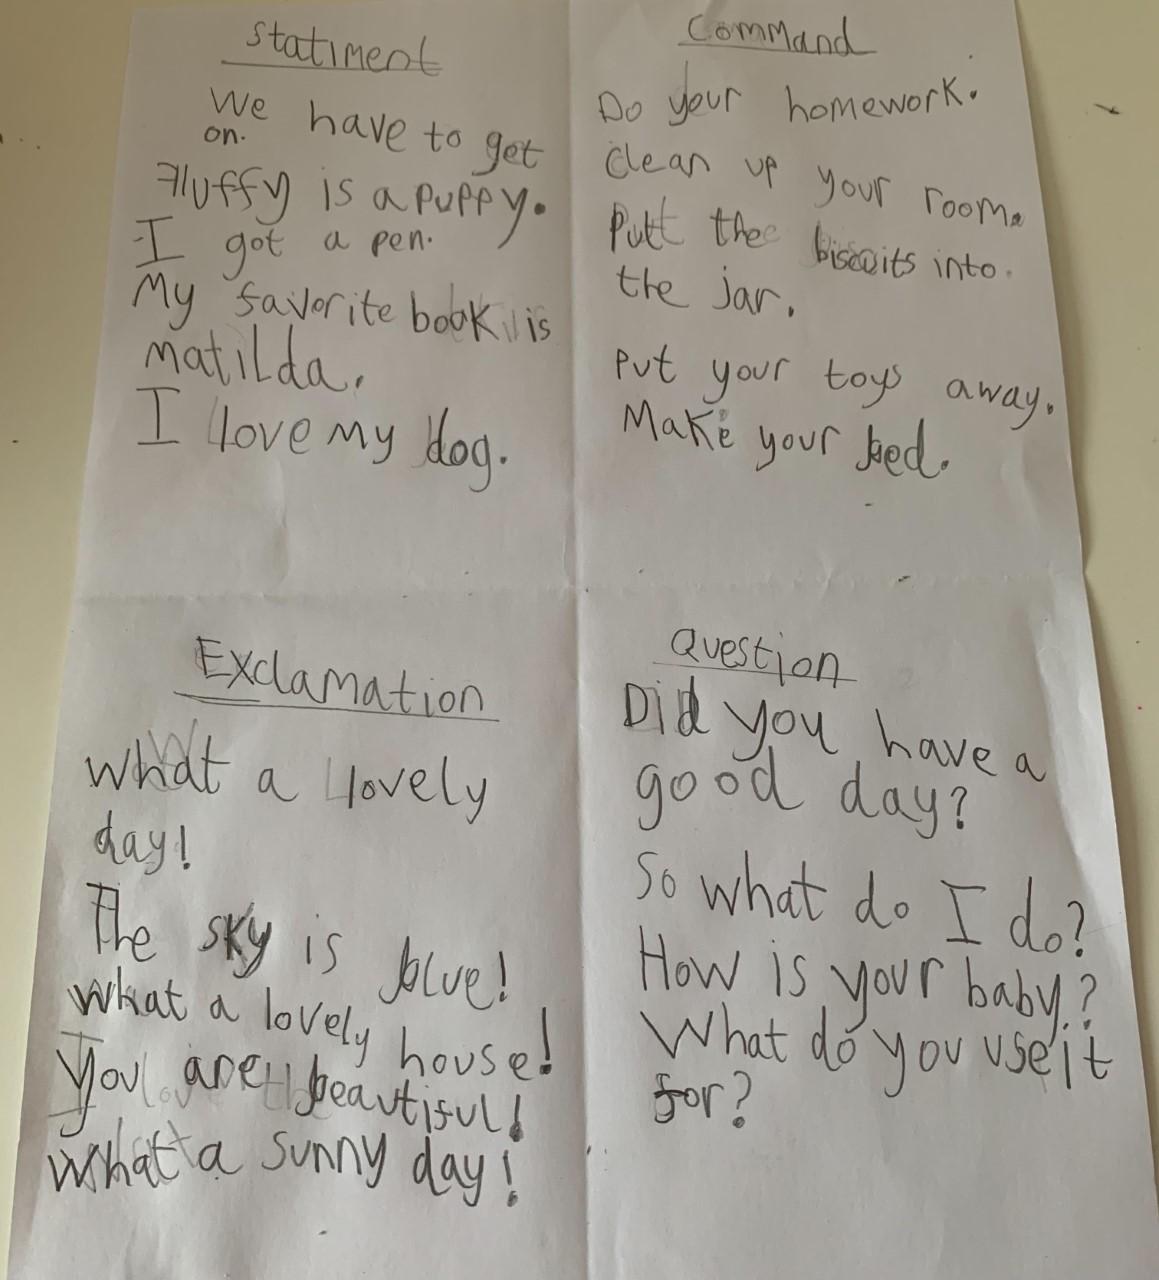 Statiment
We have to get
on.
Fluffy is a puppy.
I got a pen.
My favorite book is
Matilda.
I love my dog.
Command
Do your homework.
Clean up your room.
Putt thee biscuits into
the jar.
Put your toys away.
Make your bed.
Exclamation
What a lovely
day!
The sky is blue!
What a lovely house!
You are beautiful!
What a sunny day!
Question
Did you have a
good day?
So what do I do?
How is your baby?
What do you use it
for?